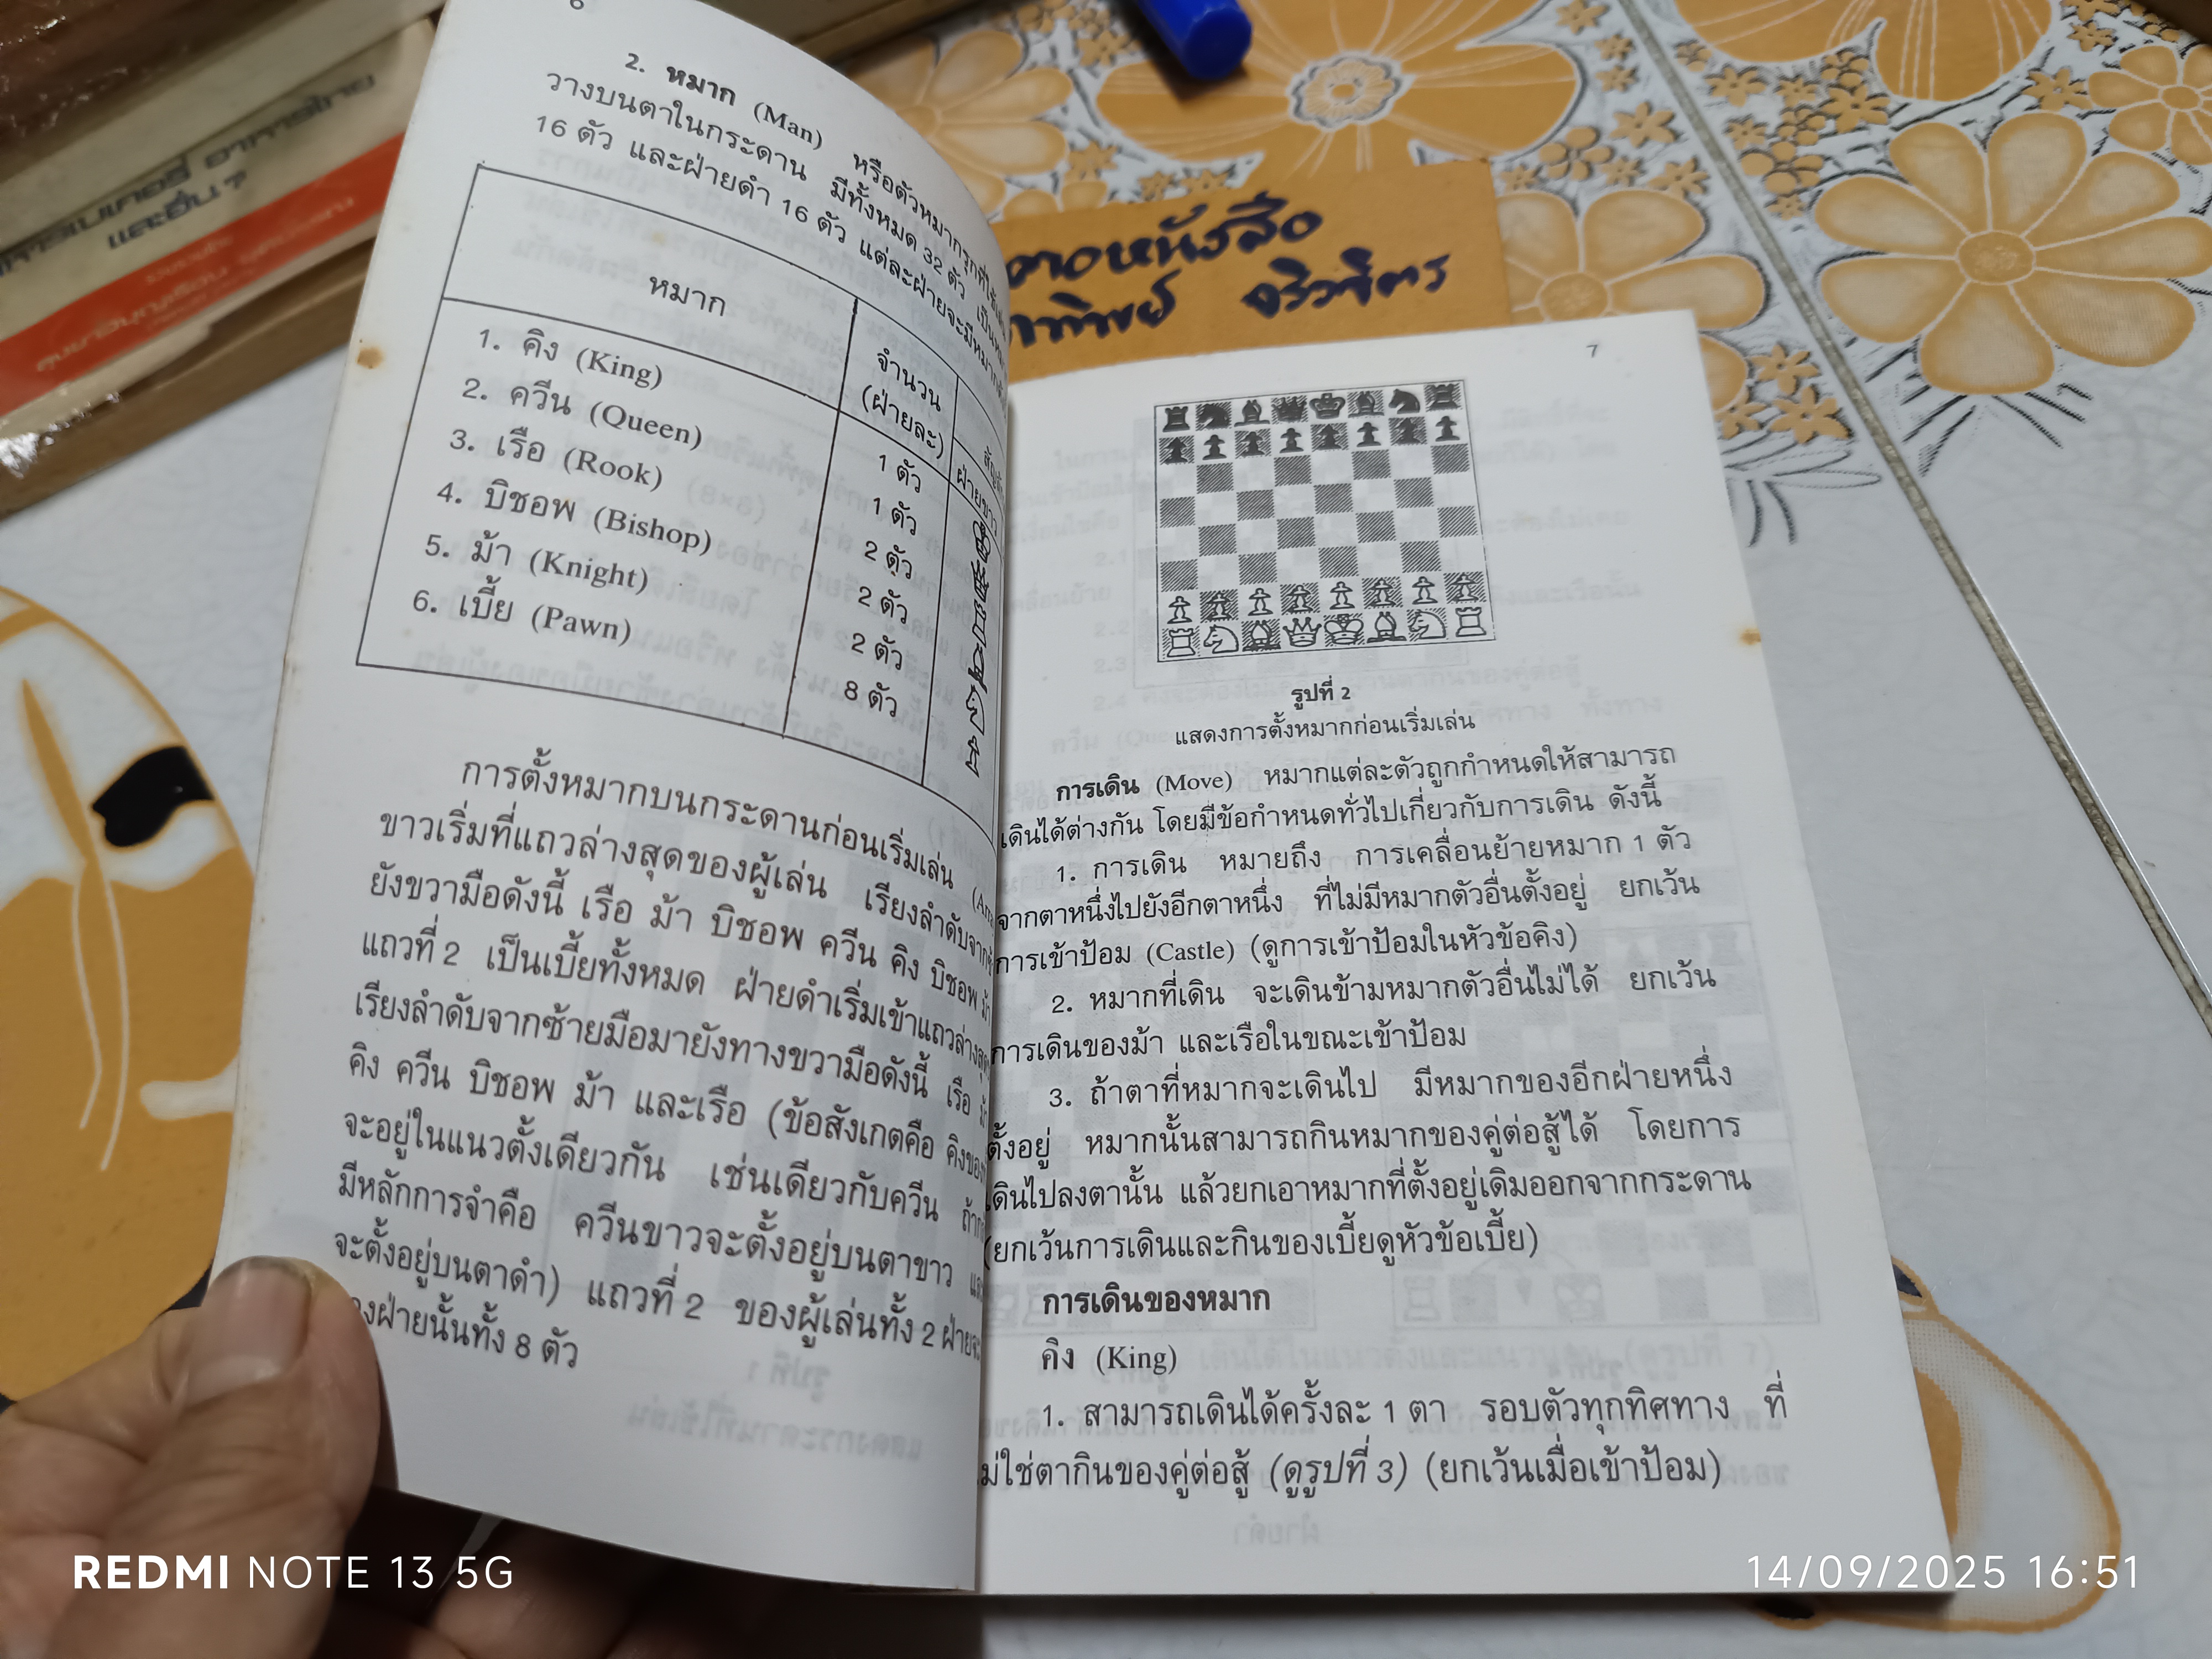 6
2. หมาก (Man) หรือตัวหมากรุกที่ใช้
วางบนตาในกระดาน มีทั้งหมด 32 ตัว เป็น
16 ตัว และฝ่ายดำ 16 ตัว แต่ละฝ่ายจะมีหมาก
หมาก
จำนวน
(ฝ่ายละ)
ฝ่ายขาว
1. คิง (King) 1 ตัว
2. ควีน (Queen) 1 ตัว
3. เรือ (Rook) 2 ตัว
4. บิชอพ (Bishop) 2 ตัว
5. ม้า (Knight) 2 ตัว
6. เบี้ย (Pawn) 8 ตัว
การตั้งหมากบนกระดานก่อนเริ่มเล่น
ขาวเริ่มที่แถวล่างสุดของผู้เล่น เรียงลำดับจาก
ยังขวามือดังนี้ เรือ ม้า บิชอพ ควีน คิง บิชอพ
แถวที่ 2 เป็นเบี้ยทั้งหมด ฝ่ายดำเริ่มเข้าแถวล่าง
เรียงลำดับจากซ้ายมือมายังทางขวามือดังนี้ เรือ
คิง ควีน บิชอพ ม้า และเรือ (ข้อสังเกตคือ คิงของ
จะอยู่ในแนวตั้งเดียวกัน เช่นเดียวกับควีน
มีหลักการจำคือ ควีนขาวจะตั้งอยู่บนตาขาว
จะตั้งอยู่บนตาดำ) แถวที่ 2 ของผู้เล่นทั้ง 2 ฝ่ายจะ
งฝ่ายนั้นทั้ง 8 ตัว
7
รูปที่ 2
แสดงการตั้งหมากก่อนเริ่มเล่น
การเดิน (Move) หมากแต่ละตัวถูกกำหนดให้สามารถ
เดินได้ต่างกัน โดยมีข้อกำหนดทั่วไปเกี่ยวกับการเดิน ดังนี้
1. การเดิน หมายถึง การเคลื่อนย้ายหมาก 1 ตัว
จากตาหนึ่งไปยังอีกตาหนึ่ง ที่ไม่มีหมากตัวอื่นตั้งอยู่ ยกเว้น
การเข้าป้อม (Castle) (ดูการเข้าป้อมในหัวข้อคิง)
2. หมากที่เดิน จะเดินข้ามหมากตัวอื่นไม่ได้ ยกเว้น
การเดินของม้า และเรือในขณะเข้าป้อม
3. ถ้าตาที่หมากจะเดินไป มีหมากของอีกฝ่ายหนึ่ง
ตั้งอยู่ หมากนั้นสามารถกินหมากของคู่ต่อสู้ได้ โดยการ
เดินไปลงตานั้น แล้วยกเอาหมากที่ตั้งอยู่เดิมออกจากกระดาน
(ยกเว้นการเดินและกินของเบี้ยดูหัวข้อเบี้ย)
การเดินของหมาก
คิง (King)
1. สามารถเดินได้ครั้งละ 1 ตา รอบตัวทุกทิศทาง ที่
ไม่ใช่ตากินของคู่ต่อสู้ (ดูรูปที่ 3) (ยกเว้นเมื่อเข้าป้อม)
REDMI NOTE 13 5G
14/09/2025 16:51